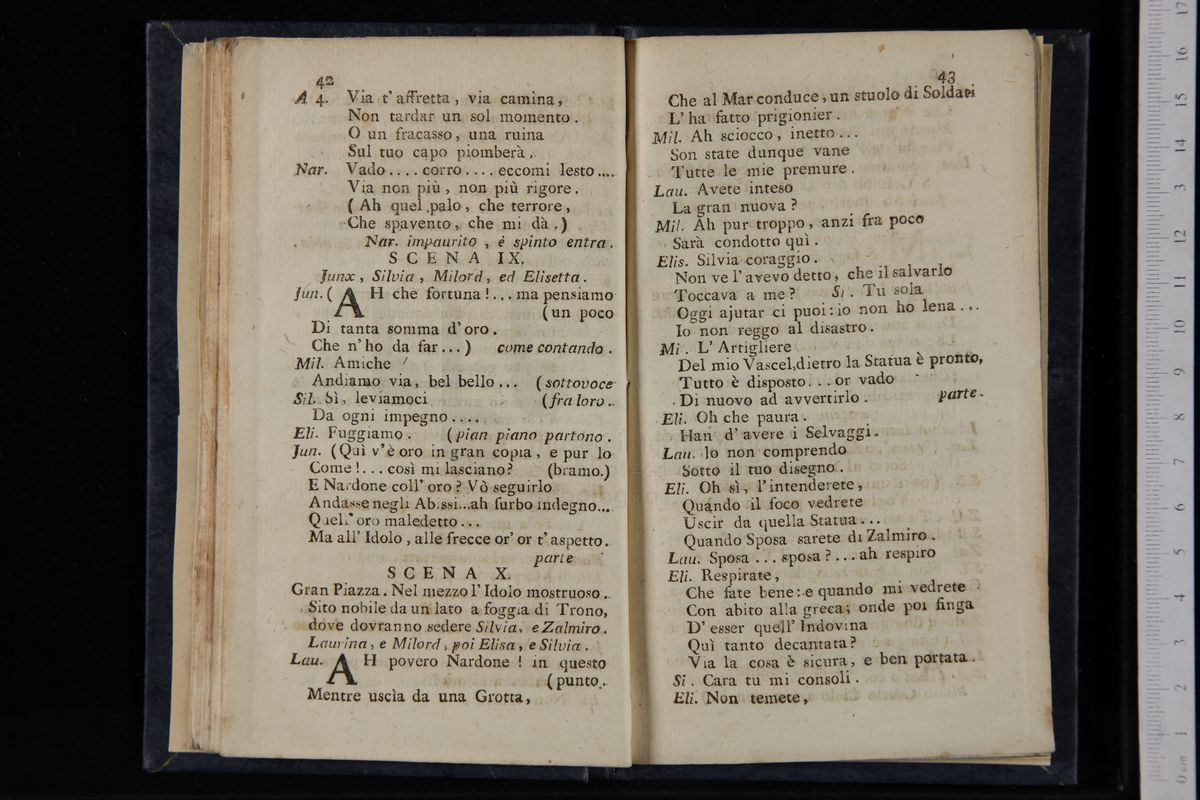 42
A 4. Via t' affretta, via camina,
Non tardar un sol momento.
O un fracasso, una ruina
Sul tuo capo piomberà.
Nar. Vado.... corro.... eccomi lesto....
Via non più, non più rigore.
(Ah quel palo, che terrore,
Che spavento, che mi dà.)
Nar. impaurito, è spinto entra.
SCENA IX.
Junx, Silvia, Milord, ed Elisetta.
Jun. (AH che fortuna!... ma pensiamo
(un poco
Di tanta somma d' oro.
Che n' ho da far...) come contando.
Mil. Amiche
Andiamo via, bel bello... (sottovoce
Sil. Sì, leviamoci (fra loro.
Da ogni impegno....
Eli. Fuggiamo. (pian piano partono.
Jun. (Quì v' è oro in gran copia, e pur lo
Come!... così mi lasciano? (bramo.)
E Nardone coll' oro? Vò seguirlo
Andasse negli Abissi...ah furbo indegno...
Quell' oro maledetto...
Ma all' Idolo, alle frecce or' or t' aspetto.
parte
SCENA X.
Gran Piazza. Nel mezzo l' Idolo mostruoso.
Sito nobile da un lato a foggia di Trono,
dove dovranno sedere Silvia, e Zalmiro.
Laurina, e Milord, poi Elisa, e Silvia.
Lau. AH povero Nardone! in questo
(punto.
Mentre uscìa da una Grotta,
43
Che al Mar conduce, un stuolo di Soldati
L' ha fatto prigionier.
Mil. Ah sciocco, inetto...
Son state dunque vane
Tutte le mie premure.
Lau. Avete inteso
La gran nuova?
Mil. Ah pur troppo, anzi fra poco
Sarà condotto quì.
Elis. Silvia coraggio.
Non ve l' avevo detto, che il salvarlo
Toccava a me? Si. Tu sola
Oggi ajutar ci puoi: io non ho lena...
Io non reggo al disastro.
Mi. L' Artigliere
Del mio Vascel, dietro la Statua è pronto,
Tutto è disposto... or vado
Di nuovo ad avvertirlo. parte.
Eli. Oh che paura.
Han d' avere i Selvaggi.
Lau. Io non comprendo
Sotto il tuo disegno.
Eli. Oh sì, l' intenderete,
Quando il foco vedrete
Uscir da quella Statua...
Quando Sposa sarete di Zalmiro.
Lau. Sposa... sposa?... ah respiro
Eli. Respirate,
Che fate bene: e quando mi vedrete
Con abito alla greca; onde poi finga
D' esser quell' Indovina
Quì tanto decantata?
Via la cosa è sicura, e ben portata.
Si. Cara tu mi consoli.
Eli. Non temete,
0 cm 1 2 3 4 5 6 7 8 9 10 11 12 13 14 15 16 17